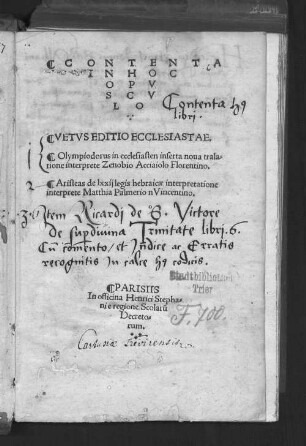 ¶CONTENTA
IN HOC
OPV
SCV
LO
Contenta hꝰ
libri.
¶VETVS EDITIO ECCLESIASTAE.
¶Olympiodorus in ecclesiasten inserta noua trala-
tione interprete Zenobio Acciaiolo Florentino.
2. ¶Aristeas de lxxij legis hebraicæ interpretatione
interprete Matthia Palmerio Vincentino.
3. Item Ricardi de S. Victore
de supdiuina Trinitate libri. 6.
Cũ comẽto, et Indice ac Erratis
recognitis in calce hꝰ codicis.
Stadtbibliothek
Trier
¶PARISIIS
In officina Henrici Stepha-
ni e regione Scolarũ
Decreto-
rum.
F. 700.
Cartusiæ Treuirensis